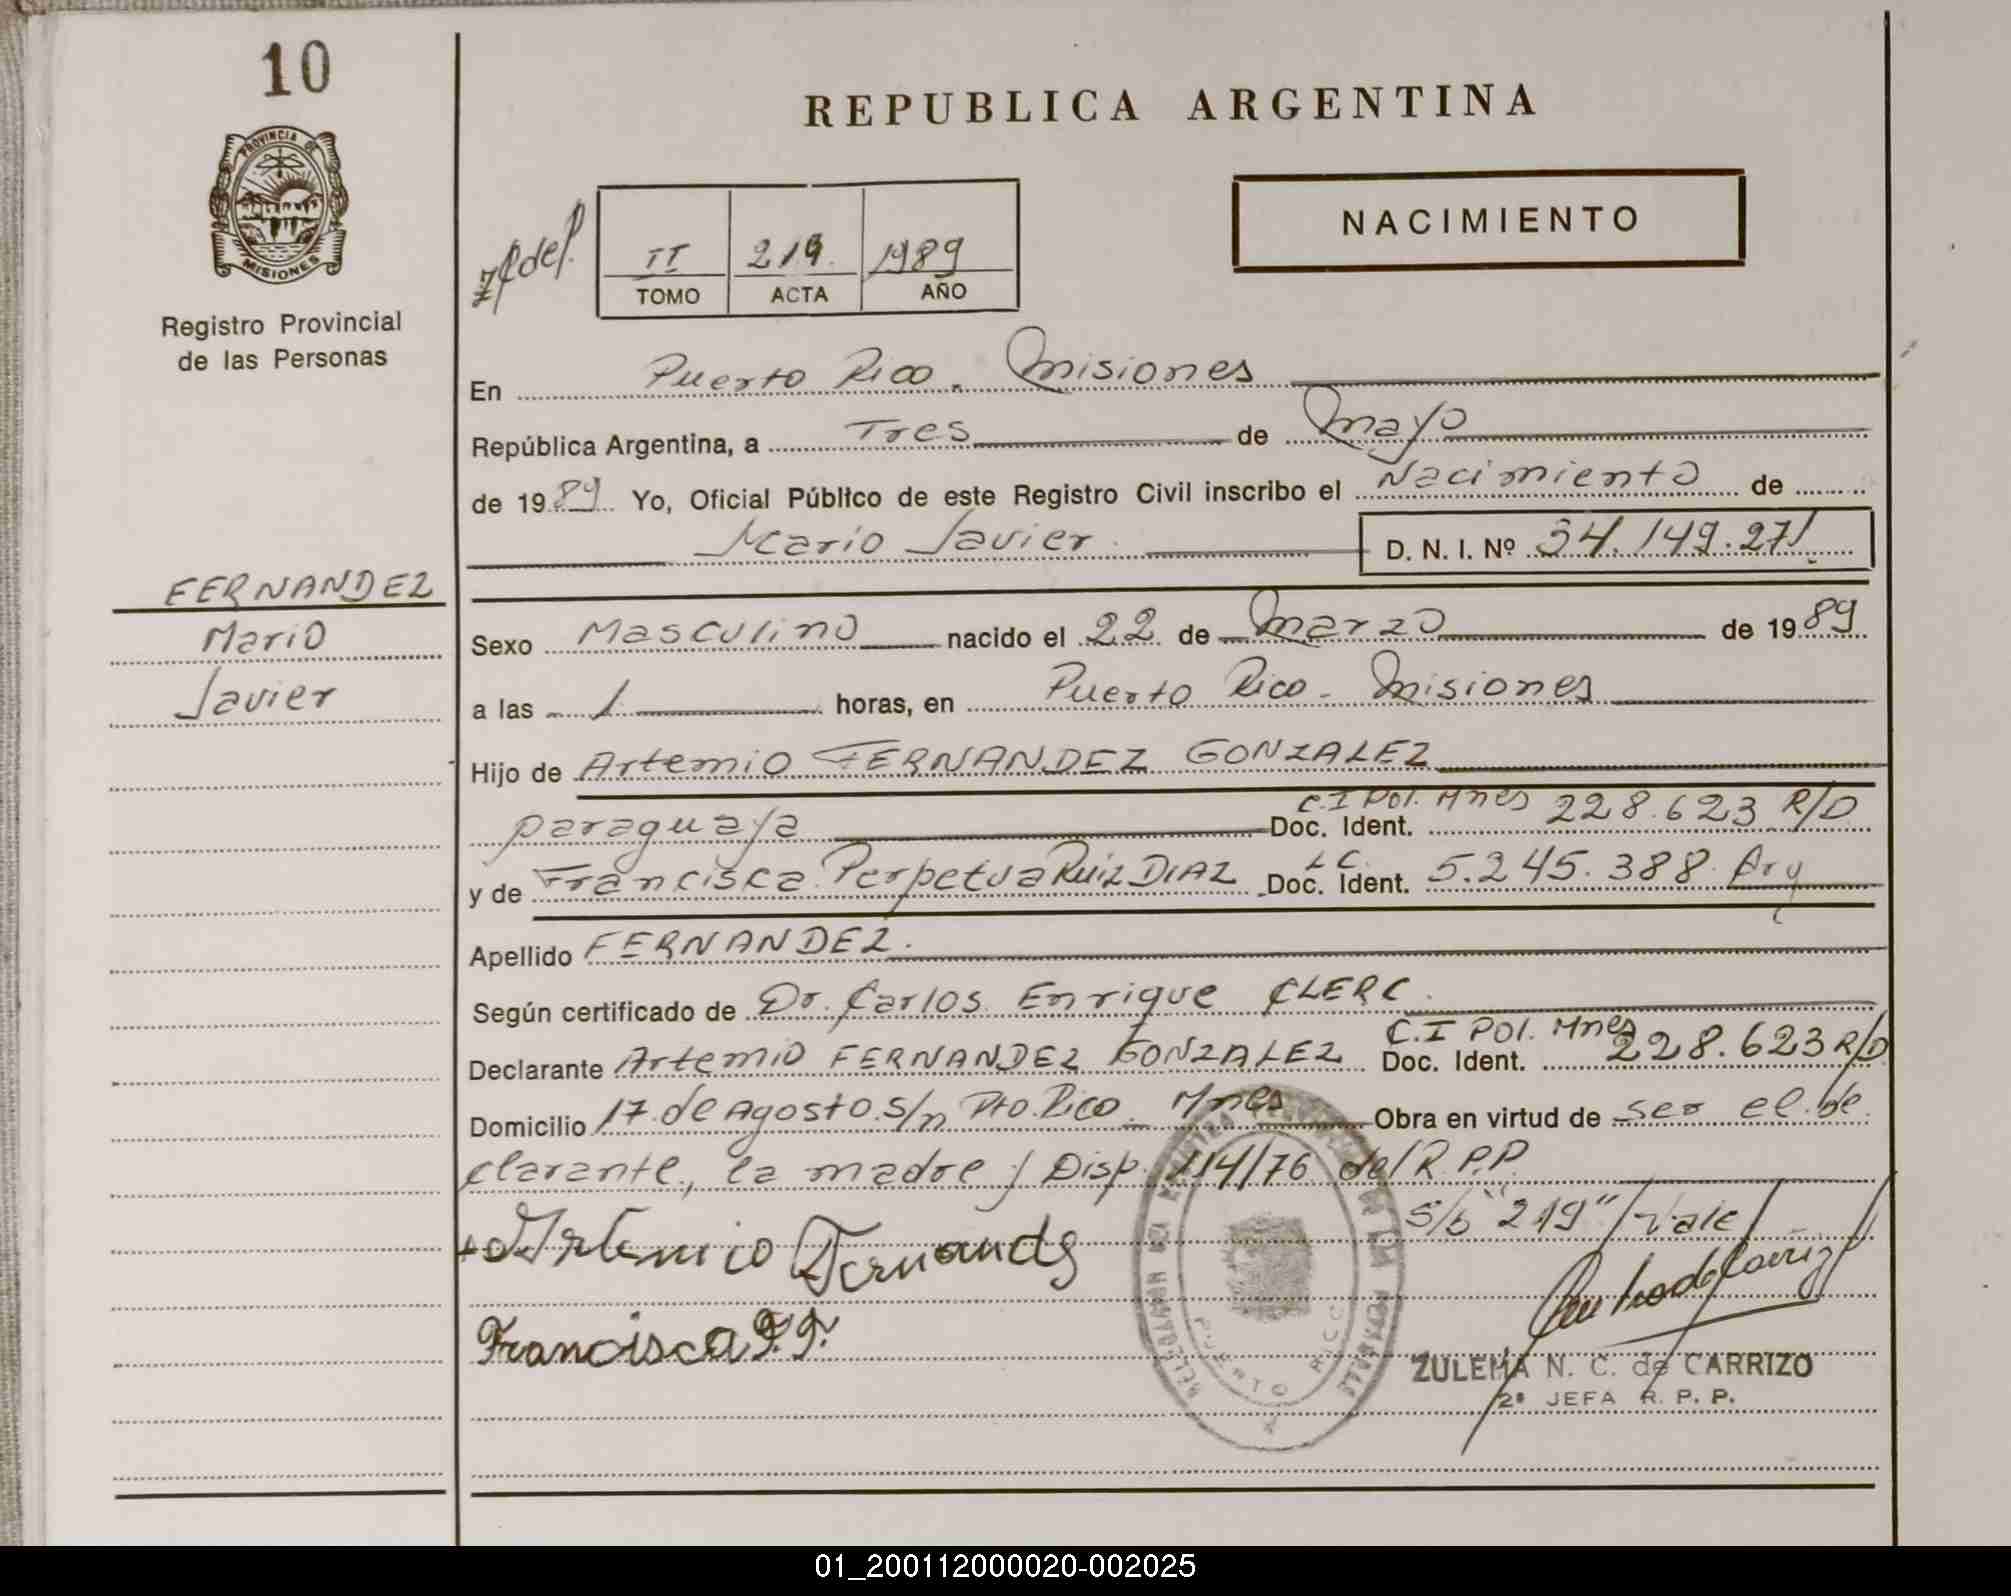 10
PROVINCIA DE
MISIONES
Registro Provincial
de las Personas
FERNANDEZ
Mario
Javier
REPUBLICA ARGENTINA
NACIMIENTO
II 219. 1989
TOMO ACTA AÑO
En Puerto Rico. Misiones
República Argentina, a Tres de Mayo
de 1989 Yo, Oficial Público de este Registro Civil inscribo el Nacimiento de
Mario Javier D. N. I. Nº 34.149.271
Sexo Masculino nacido el 22 de Marzo de 1989
a las 1 horas, en Puerto Rico - Misiones
Hijo de Artemio FERNANDEZ GONZALEZ
paraguaya Doc. Ident. C.I Pol. Mnes 228.623 R/D
y de Francisca Perpetua Ruiz DIAZ Doc. Ident. L C. 5.245.388 Arg
Apellido FERNANDEZ.
Según certificado de Dr. Carlos Enrique CLERC.
Declarante Artemio FERNANDEZ GONZALEZ Doc. Ident. C.I Pol. Mnes 228.623 R/D
Domicilio 17 de Agosto s/n Pto. Rico. Mnes Obra en virtud de ser el de
clarante, la madre y Disp. 114/76 del R.P.P.
S/b "219" / Vale/
Artemico Fernandes
Francisca
PUERTO RICO
ZULEMA N. C. de CARRIZO
2ª JEFA R. P. P.
01_200112000020-002025